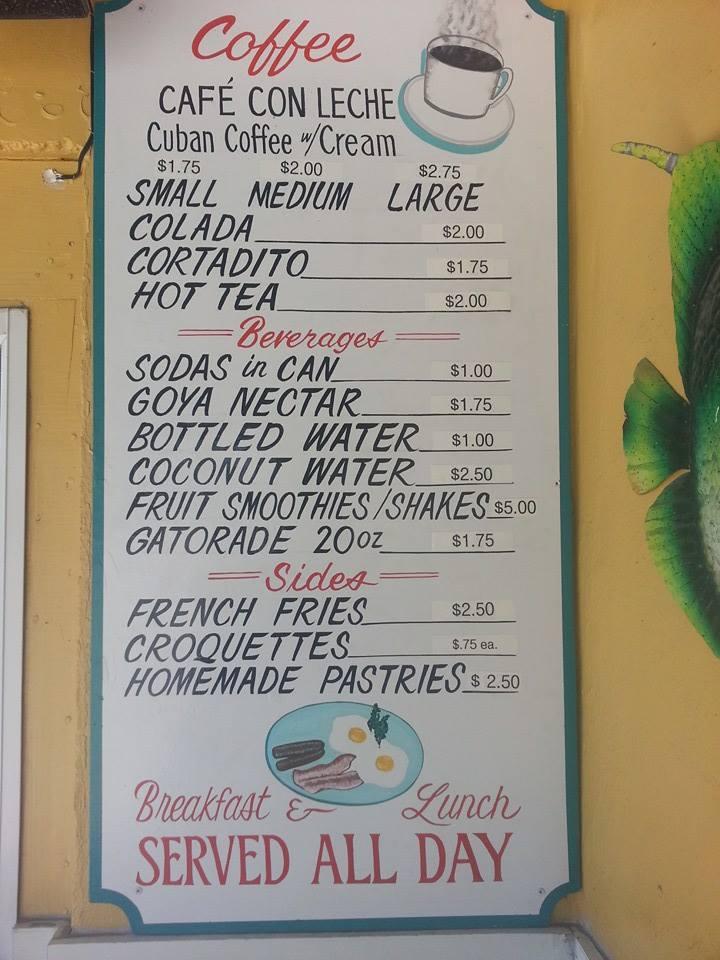 Coffee
CAFÉ CON LECHE
Cuban Coffee w/Cream
$1.75 $2.00 $2.75
SMALL MEDIUM LARGE
COLADA $2.00
CORTADITO $1.75
HOT TEA $2.00
Beverages
SODAS in CAN $1.00
GOYA NECTAR $1.75
BOTTLED WATER $1.00
COCONUT WATER $2.50
FRUIT SMOOTHIES/SHAKES $5.00
GATORADE 20oz $1.75
Sides
FRENCH FRIES $2.50
CROQUETTES $.75 ea.
HOMEMADE PASTRIES $ 2.50
Breakfast & Lunch
SERVED ALL DAY